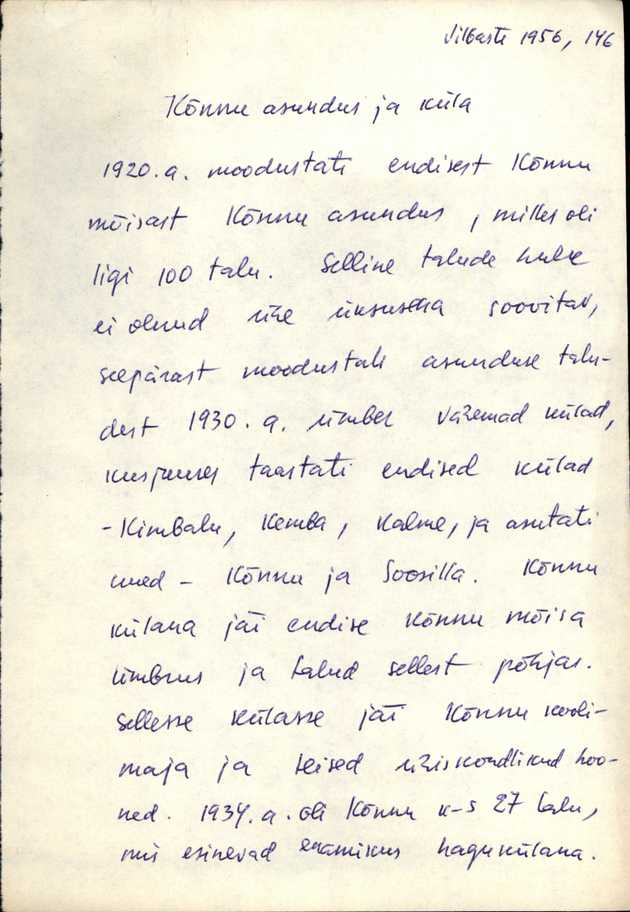 Vilbaste 1956, 146
Kõnnu asundus ja küla
1920. a. moodustati endisest Kõnnu
mõisast Kõnnu asundus, milles oli
ligi 100 talu. Selline talude hulk
ei olnud ühe üksusena soovitav,
seepärast moodustati asunduse talu-
dest 1930. a. ümber väiksemad külad,
kusjuures taastati endised külad
- Kimbalu, Kemba, Kalme, ja asutati
uued - Kõnnu ja Soosilla. Kõnnu
külana jäi endise Kõnnu mõisa
ümbrus ja talud sellest põhjas.
Sellesse külasse jäi Kõnnu kooli-
maja ja teised ühiskondlikud hoo-
ned. 1934. a. oli Kõnnu k-s 27 talu,
mis esinevad enamikus hagukülana.